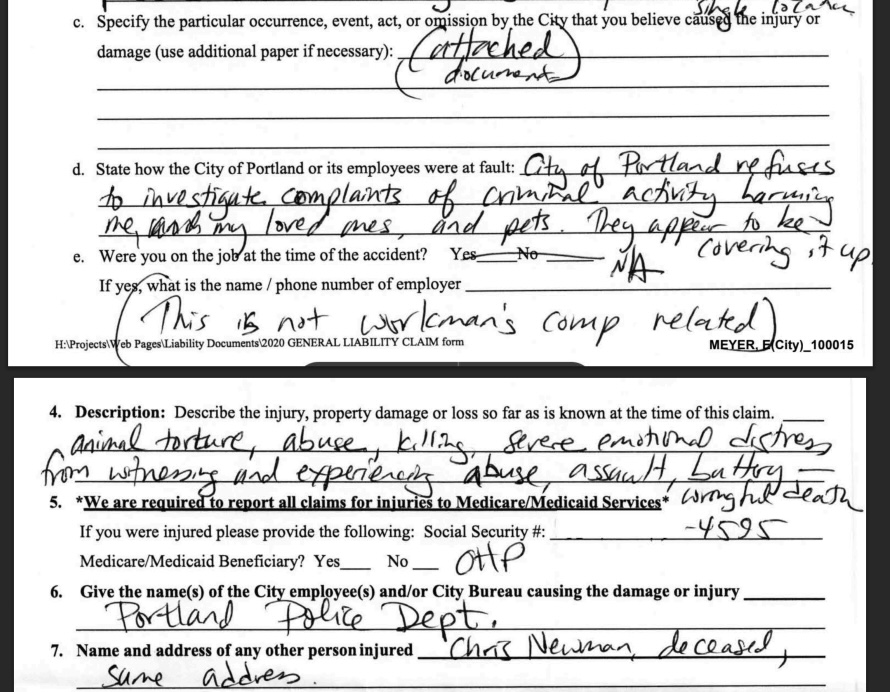 single
c. Specify the particular occurrence, event, act, or omission by the City that you believe caused the injury or
damage (use additional paper if necessary): (attached
document)
d. State how the City of Portland or its employees were at fault: City of Portland refuses
to investigate complaints of criminal activity harming
me, my loved ones, and pets. They appear to be
covering it up.
e. Were you on the job at the time of the accident? Yes No N/A
If yes, what is the name / phone number of employer
(This is not workman's comp related)
H:\Projects\Web Pages\Liability Documents\2020 GENERAL LIABILITY CLAIM form MEYER, E(City)_100015
4. Description: Describe the injury, property damage or loss so far as is known at the time of this claim.
animal torture, abuse, killing, severe emotional distress
from witnessing and experiencing abuse, assault, battery –
wrongful death
5. *We are required to report all claims for injuries to Medicare/Medicaid Services*
If you were injured please provide the following: Social Security #: -4595
Medicare/Medicaid Beneficiary? Yes___ No ___ OHP
6. Give the name(s) of the City employee(s) and/or City Bureau causing the damage or injury
Portland Police Dept.
7. Name and address of any other person injured Chris Newman, deceased,
same address.